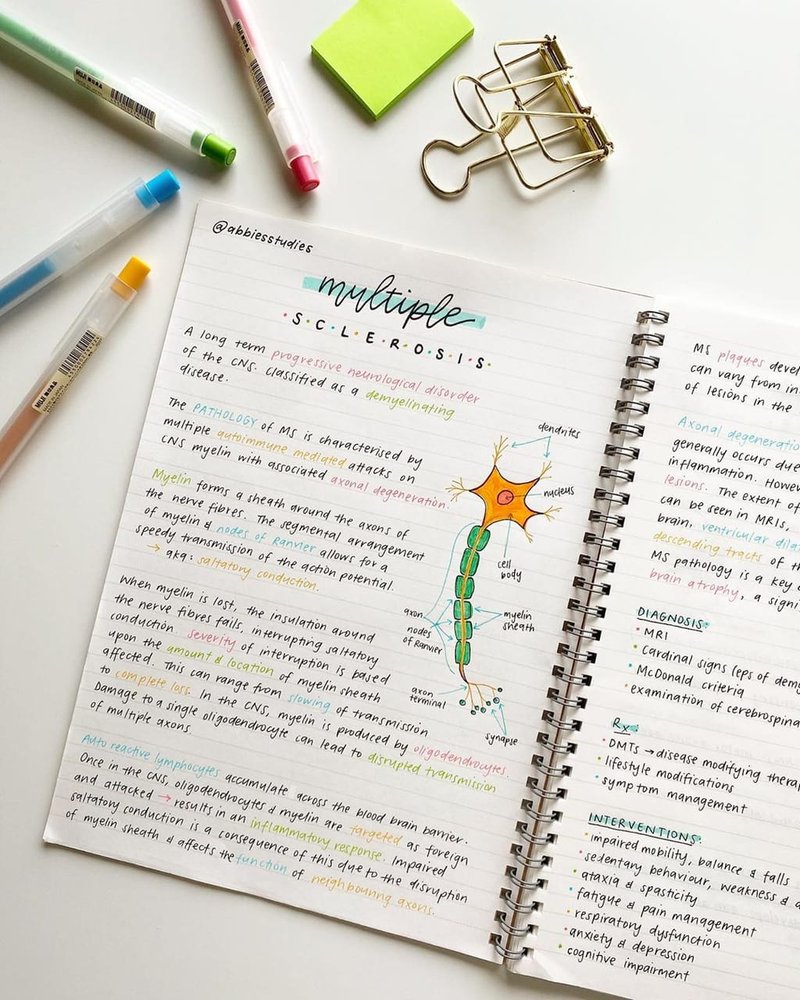 MUJ MOMA
@abbiesstudies
multiple
SCLEROSIS
A long term progressive neurological disorder
of the CNS. Classified as a demyelinating
disease.
The PATHOLOGY of MS is characterised by
multiple autoimmune mediated attacks on
CNS myelin with associated axonal degeneration.
Myelin forms a sheath around the axons of
the nerve fibres. The segmental arrangement
of myelin & nodes of Ranvier allows for a
speedy transmission of the action potential.
→ aka: saltatory conduction.
When myelin is lost, the insulation around
the nerve fibres fails, interrupting saltatory
conduction severity of interruption is based
upon the amount & location of myelin sheath
affected. This can range from slowing of transmission
to complete loss. In the CNS, myelin is produced by oligodendrocytes.
Damage to a single oligodendrocyte can lead to disrupted transmission
of multiple axons.
Auto reactive lymphocytes accumulate across the blood brain barrier.
Once in the CNS, oligodendrocytes & myelin are targeted as foreign
and attacked → results in an inflammatory response. Impaired
saltatory conduction is a consequence of this due to the disruption
of myelin sheath & affects the function of neighbouring axons.
dendrites
nucleus
cell
body
axon
nodes
of Ranvier
myelin
sheath
axon
terminal
synapse
MS plaques deve
can vary from in
of lesions in the
Axonal degeneratio
generally occurs due
inflammation. Howe
lesions. The extent of
can be seen in MRIs,
brain, ventricular dila
descending tracts of th
MS pathology is a key c
brain atrophy, a signi
DIAGNOSIS:
• MRI
• Cardinal signs (eps of demy
• McDonald criteria
• examination of cerebrospina
Rx
• DMTs → disease modifying therap
• lifestyle modifications
• symptom management
INTERVENTIONS:
• impaired mobility, balance & falls
• sedentary behaviour, weakness & d
• ataxia & spasticity
• fatigue & pain management
• respiratory dysfunction
• anxiety & depression
• cognitive impairment